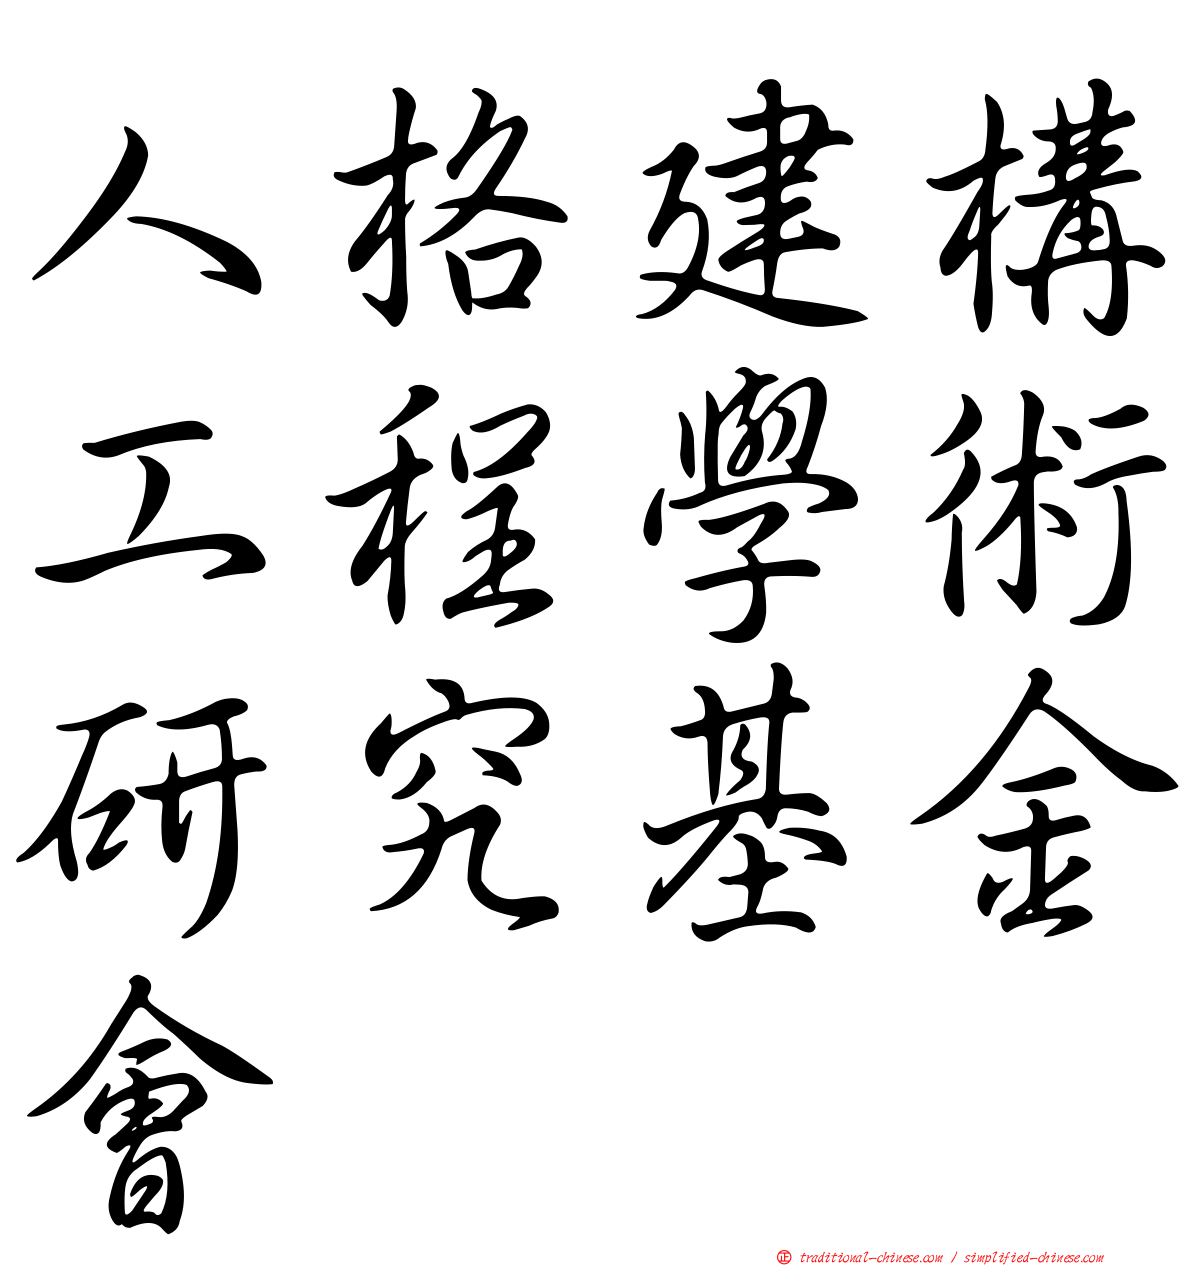 人格建構
工程學術
研究基金
會
正 traditional-chinese.com / simplified-chinese.com